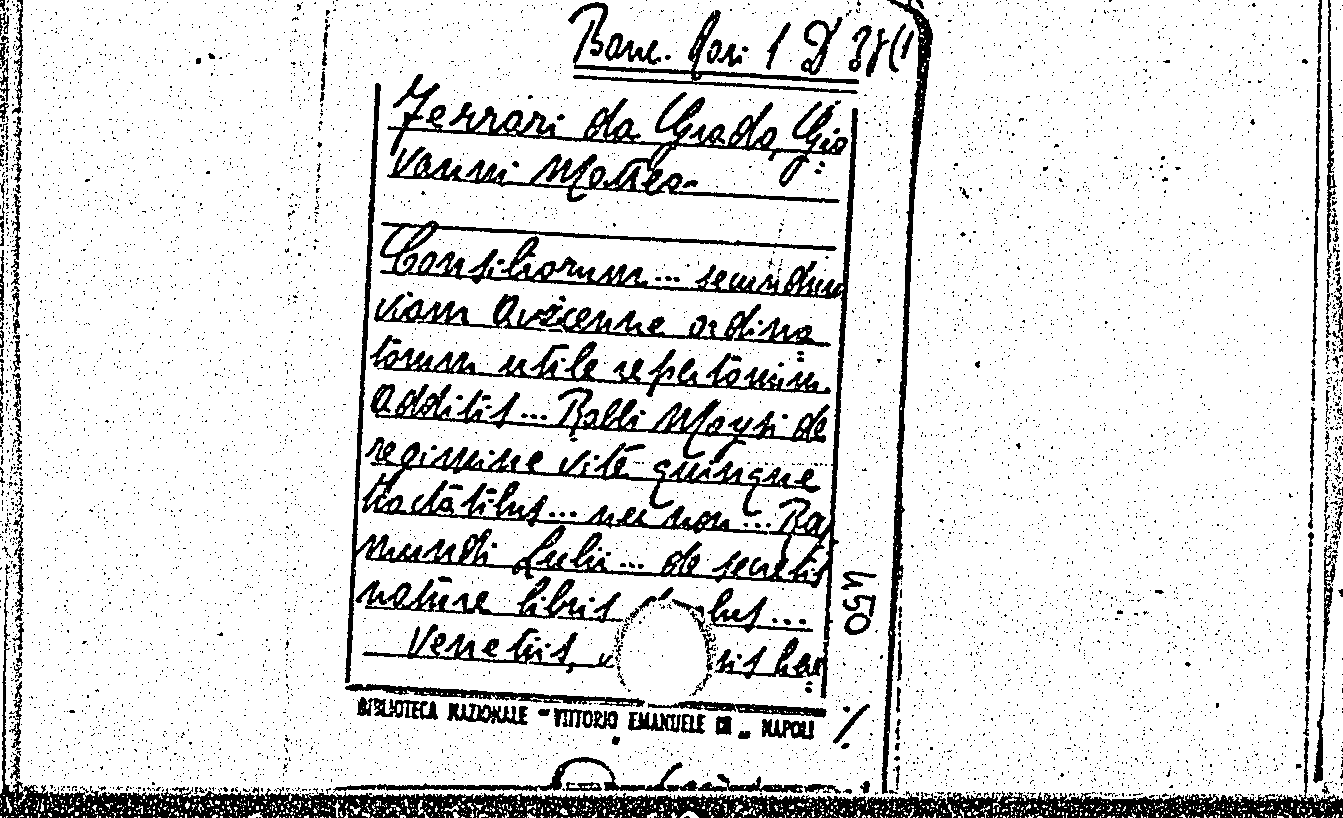 Banc. Rari 1 D 38(1
Ferrari da Grado, Gio
vanni Matteo
Consiliorum... secundum
viam Avicenne ordina
torum utile repertorium.
Additis... Rabbi Moysi de
regimine vite quinque
tractatibus... nec non... Ray
mundi Lulii... de secretis
nature libris ...
Venetiis, her
450
BIBLIOTECA NAZIONALE "VITTORIO EMANUELE III" NAPOLI ./.